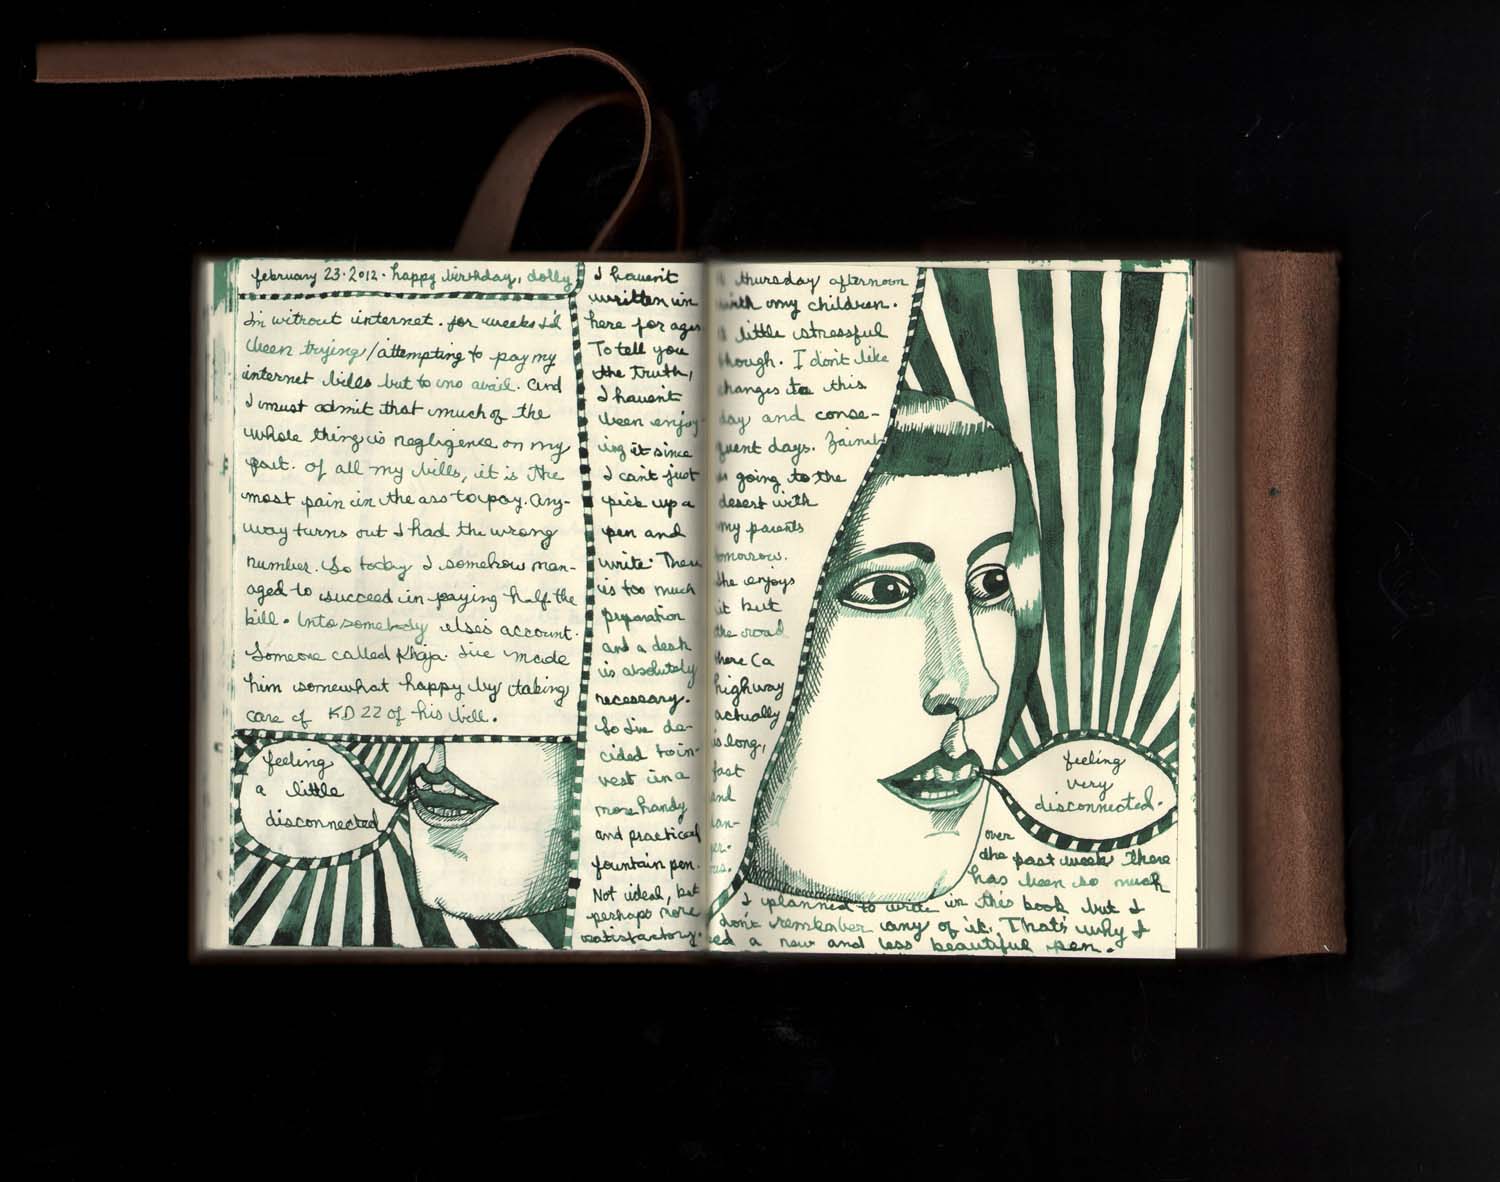 february 23·2012· happy birthday, dolly
I'm without internet. for weeks I'd
been trying/attempting to pay my
internet bills but to no avail. and
I must admit that much of the
whole thing is negligence on my
part. of all my bills, it is the
most pain in the ass to pay. any-
way turns out I had the wrong
number. So today I somehow man-
aged to succeed in paying half the
bill. Into somebody else's account.
Someone called Khaja. I've made
him somewhat happy by taking
care of KD 22 of his bill.
feeling
a little
disconnected
I haven't
written in
here for ages
To tell you
the truth,
I haven't
been enjoy-
ing it since
I can't just
pick up a
pen and
write. There
is too much
preparation
and a desk
is absolutely
necessary.
So I've de-
cided to in-
vest in a
more handy
and practical
fountain pen.
Not ideal, but
perhaps more
satisfactory.
thursday afternoon
with my children.
a little stressful
though. I don't like
changes to this
day and conse-
quent days. Zainab
is going to the
desert with
my parents
tomorrow.
she enjoys
it but
the road
there (a
highway
actually
is long,
fast
and
dan-
ger-
ous.
feeling
very
disconnected.
over
the past week there
has been so much
I planned to write in this book but I
don't remember any of it. That's why I
a new and less beautiful pen.